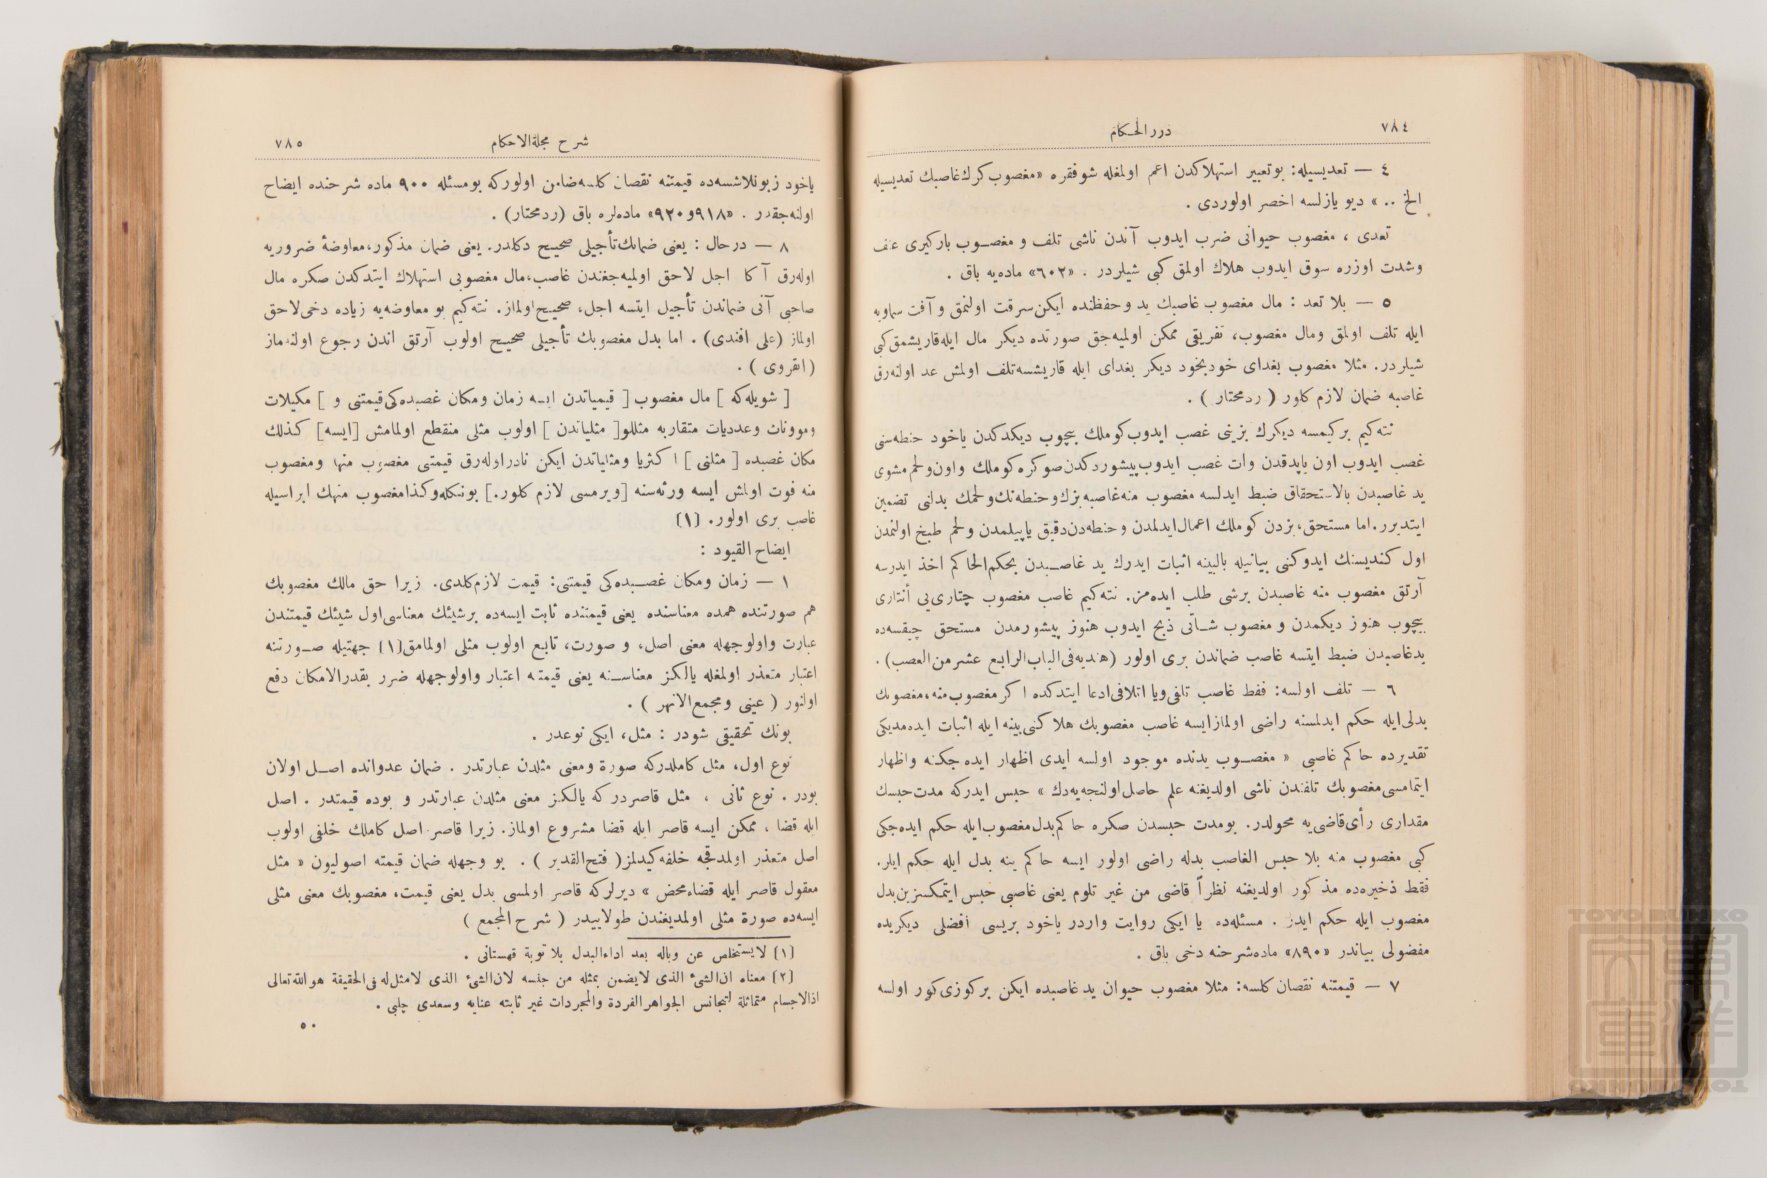 ٧٨٤
درر الحكام
٤ — تعديسيله: بوتعبير استهلاكدن اعم اولمغله شوفقره «مغصوب كرك غاصبك تعديسيله
الخ ..» ديو يازلسه اخصر اولوردى .
تعدى ، مغصوب حيوانى ضرب ايدوب آندن ناشى تلف و مغصوب باركيرى عنف
وشدت اوزره سوق ايدوب هلاك اولمق كبى شيلردر . «٦٠٢» ماده‌يه باق .
٥ — بلا تعد : مال مغصوب غاصبك يد وحفظنده ايكن سرقت اولنمق و آفت سماويه
ايله تلف اولمق ومال مغصوب، تفريقى ممكن اوليه‌جق صورتده ديكر مال ايله قاريشمق كبى
شيلردر. مثلا مغصوب بغداى خودبخود ديكر بغداى ايله قاريشسه تلف اولمش عد اولنه‌رق
غاصبه ضمان لازم كلور ( ردمحتار ) .
نته‌كيم بركيمسه ديكرك بزينى غصب ايدوب كوملك بيچوب ديكدكدن ياخود حنطه‌سنى
غصب ايدوب اون ياپدقدن وات غصب ايدوب پيشوردكدن صوكره كوملك واون ولحم مشوى
يد غاصبدن بالاستحقاق ضبط ايدلسه مغصوب منه غاصبه بزك وحنطه‌نك ولحمك بدلنى تضمين
ايتديرر. اما مستحق، بزدن كوملك اعمال ايدلمدن وحنطه‌دن دقيق ياپيلمدن و لحم طبخ اولنمدن
اول كنديسنك ايدوكنى بيانيله بالبينه اثبات ايدرك يد غاصبدن بحكم الحاكم اخذ ايدرسه
آرتق مغصوب منه غاصبدن برشى طلب ايده‌مز. نته‌كيم غاصب مغصوب چتارى‌يى أنتارى
بيچوب هنوز ديكمدن و مغصوب شاتى ذبح ايدوب هنوز پيشورمدن مستحق چيقسه‌ده
يدغاصبدن ضبط ايتسه غاصب ضماندن برى اولور (هنديه فى الباب الرابع عشر من الغصب) .
٦ — تلف اولسه: فقط غاصب تلفى ويا اتلافى ادعا ايتدكده اكر مغصوب منه، مغصوبك
بدلى ايله حكم ايدلمسنه راضى اولماز ايسه غاصب مغصوبك هلاكنى بينه ايله اثبات ايده‌مديكى
تقديرده حاكم غاصبى « مغصوب يدنده موجود اولسه ايدى اظهار ايده‌جكنه واظهار
ايتمامسى مغصوبك تلفندن ناشى اولديغنه علم حاصل اولنجه‌يه‌دك » حبس ايدركه مدت حبسك
مقدارى رأى قاضى‌يه محولدر. بومدت حبسدن صكره حاكم بدل مغصوب ايله حكم ايده‌جكى
كبى مغصوب منه بلا حبس الغاصب بدله راضى اولور ايسه حاكم ينه بدل ايله حكم ايلر.
فقط ذخيره‌ده مذكور اولديغنه نظراً قاضى من غير تلوم يعنى غاصبى حبس ايتمكسزين بدل
مغصوب ايله حكم ايدر . مسئله‌ده يا ايكى روايت واردر ياخود بريسى افضلى ديكريده
مفضولى بياندر «٨٩٠» ماده شرحنه دخى باق .
٧ — قيمتنه نقصان كلسه: مثلا مغصوب حيوان يد غاصبده ايكن بركوزى كور اولسه
شرح مجلة الاحكام
٧٨٥
ياخود زبونلاشسه‌ده قيمتنه نقصان كلسه ضامن اولوركه بومسئله ٩٠٠ ماده شرحنده ايضاح
اولنه‌جقدر . «٩١٨و٩٢٠» ماده‌لره باق (ردمحتار) .
٨ — درحال : يعنى ضمانك تأجيلى صحيح دكلدر. يعنى ضمان مذكور، معاوضۀ ضروريه
اوله‌رق آكا اجل لاحق اوليه‌جغندن غاصب، مال مغصوبى استهلاك ايتدكدن صكره مال
صاحبى آنى ضماندن تأجيل ايتسه اجل، صحيح اولماز. نته‌كيم بو معاوضه‌يه زياده دخى لاحق
اولماز (على افندى) . اما بدل مغصوبك تأجيلى صحيح اولوب آرتق اندن رجوع اولنه‌ماز
(انقروى) .
[ شويله‌كه ] مال مغصوب [ قيمياتدن ايسه زمان ومكان غصبده‌كى قيمتنى و ] مكيلات
وموزونات وعدديات متقاربه مثللو [ مثلياتدن ] اولوب مثلى منقطع اولمامش [ايسه] كذلك
مكان غصبده [ مثلنى ] اكثريا ومثلياتدن ايكن نادرا اوله‌رق قيمتنى مغصوب منها ومغصوب
منه فوت اولمش ايسه ورثه‌سنه [ويرمسى لازم كلور.] بونكله وكذا مغصوب منهك ابراسيله
غاصب برى اولور. (١)
ايضاح القيود :
١ — زمان ومكان غصبده‌كى قيمتنى: قيمت لازم كلدى. زيرا حق مالك مغصوبك
هم صورتنده همده معناسنده يعنى قيمتنده ثابت ايسه‌ده برشيئك معناسى اول شيئك قيمتندن
عبارت واولوجهله معنى اصل، و صورت، تابع اولوب مثلى اولمامق(١) جهتيله صورتنه
اعتبار متعذر اولمغله يالكز معناسنه يعنى قيمتنه اعتبار واولوجهله ضرر بقدرالامكان دفع
اولنور ( عينى ومجمع الانهر ) .
بونك تحقيقى شودر : مثل، ايكى نوعدر .
نوع اول، مثل كاملدركه صورة ومعنى مثلدن عبارتدر . ضمان عدوانده اصل اولان
بودر . نوع ثانى ، مثل قاصردركه يالكز معنى مثلدن عبارتدر و بوده قيمتدر . اصل
ايله قضا ، ممكن ايسه قاصر ايله قضا مشروع اولماز. زيرا قاصر اصل كاملك خلفى اولوب
اصل متعذر اولمدقجه خلفه كيدلمز( فتح القدير ) . بو وجهله ضمان قيمته اصوليون « مثل
معقول قاصر ايله قضاء محض » ديرلركه قاصر اولمسى بدل يعنى قيمت، مغصوبك معنى مثلى
ايسه‌ده صورة مثلى اولمديغندن طولاييدر ( شرح المجمع )
(١) لايستخلص عن وباله بعد اداء البدل بلا توبة قهستانى .
(٢) معناه ان الشئ الذى لايضمن بمثله من جنسه لان الشئ الذى لامثل له فى الحقيقة هو الله تعالى
اذالاجسام متماثلة لتجانس الجواهر الفردة والمجردات غير ثابته عنايه وسعدى چلبى .
٥٠
TOYO BUNKO